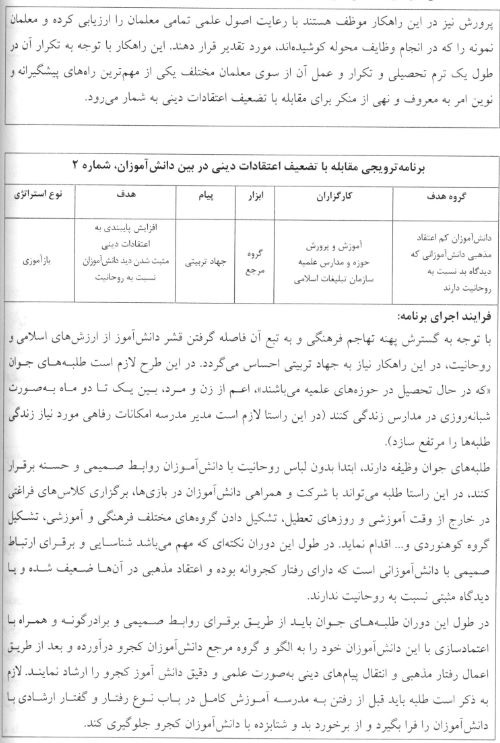 پرورش نیز در این راهکار موظف هستند با رعایت اصول علمی تمامی معلمان را ارزیابی کرده و معلمان
نمونه را که در انجام وظایف محوله کوشیده‌اند، مورد تقدیر قرار دهند. این راهکار با توجه به تکرار آن در
طول یک ترم تحصیلی و تکرار و عمل آن از سوی معلمان مختلف یکی از مهم‌ترین راه‌های پیشگیرانه و
نوین امر به معروف و نهی از منکر برای مقابله با تضعیف اعتقادات دینی به شمار می‌رود.
برنامه ترویجی مقابله با تضعیف اعتقادات دینی در بین دانش‌آموزان، شماره ۲
گروه هدف کارگزاران ابزار پیام هدف نوع استراتژی
دانش‌آموزان کم اعتقاد
مذهبی دانش‌آموزانی که
دیدگاه بد نسبت به
روحانیت دارند
آموزش و پرورش
حوزه و مدارس علمیه
سازمان تبلیغات اسلامی
گروه
مرجع
جهاد تربیتی
افزایش پایبندی به
اعتقادات دینی
مثبت شدن دید دانش‌آموزان
نسبت به روحانیت
بازآموزی
فرایند اجرای برنامه:
با توجه به گسترش پهنه تهاجم فرهنگی و به تبع آن فاصله گرفتن قشر دانش‌آموز از ارزش‌های اسلامی و
روحانیت، در این راهکار نیاز به جهاد تربیتی احساس می‌گردد. در این طرح لازم است طلبه‌های جوان
«که در حال تحصیل در حوزه‌های علمیه می‌باشند»، اعم از زن و مرد، بین یک تا دو ماه به‌صورت
شبانه‌روزی در مدارس زندگی کنند (در این راستا لازم است مدیر مدرسه امکانات رفاهی مورد نیاز زندگی
طلبه‌ها را مرتفع سازد).
طلبه‌های جوان وظیفه دارند، ابتدا بدون لباس روحانیت با دانش‌آموزان روابط صمیمی و حسنه برقرار
کنند، در این راستا طلبه می‌تواند با شرکت و همراهی دانش‌آموزان در بازی‌ها، برگزاری کلاس‌های فراغتی
در خارج از وقت آموزشی و روزهای تعطیل، تشکیل دادن گروه‌های مختلف فرهنگی و آموزشی، تشکیل
گروه کوهنوردی و... اقدام نماید. در طول این دوران نکته‌ای که مهم می‌باشد شناسایی و برقرای ارتباط
صمیمی با دانش‌آموزانی است که دارای رفتار کجروانه بوده و اعتقاد مذهبی در آن‌ها ضعیف شده و یا
دیدگاه مثبتی نسبت به روحانیت ندارند.
در طول این دوران طلبه‌های جوان باید از طریق برقرای روابط صمیمی و برادرگونه و همراه با
اعتمادسازی با این دانش‌آموزان خود را به الگو و گروه مرجع دانش‌آموزان کجرو درآورده و بعد از طریق
اعمال رفتار مذهبی و انتقال پیام‌های دینی به‌صورت علمی و دقیق دانش آموز کجرو را ارشاد نمایند. لازم
به ذکر است طلبه باید قبل از رفتن به مدرسه آموزش کامل در باب نوع رفتار و گفتار ارشادی با
دانش‌آموزان را فرا بگیرد و از برخورد بد و شتابزده با دانش‌آموزان کجرو جلوگیری کند.